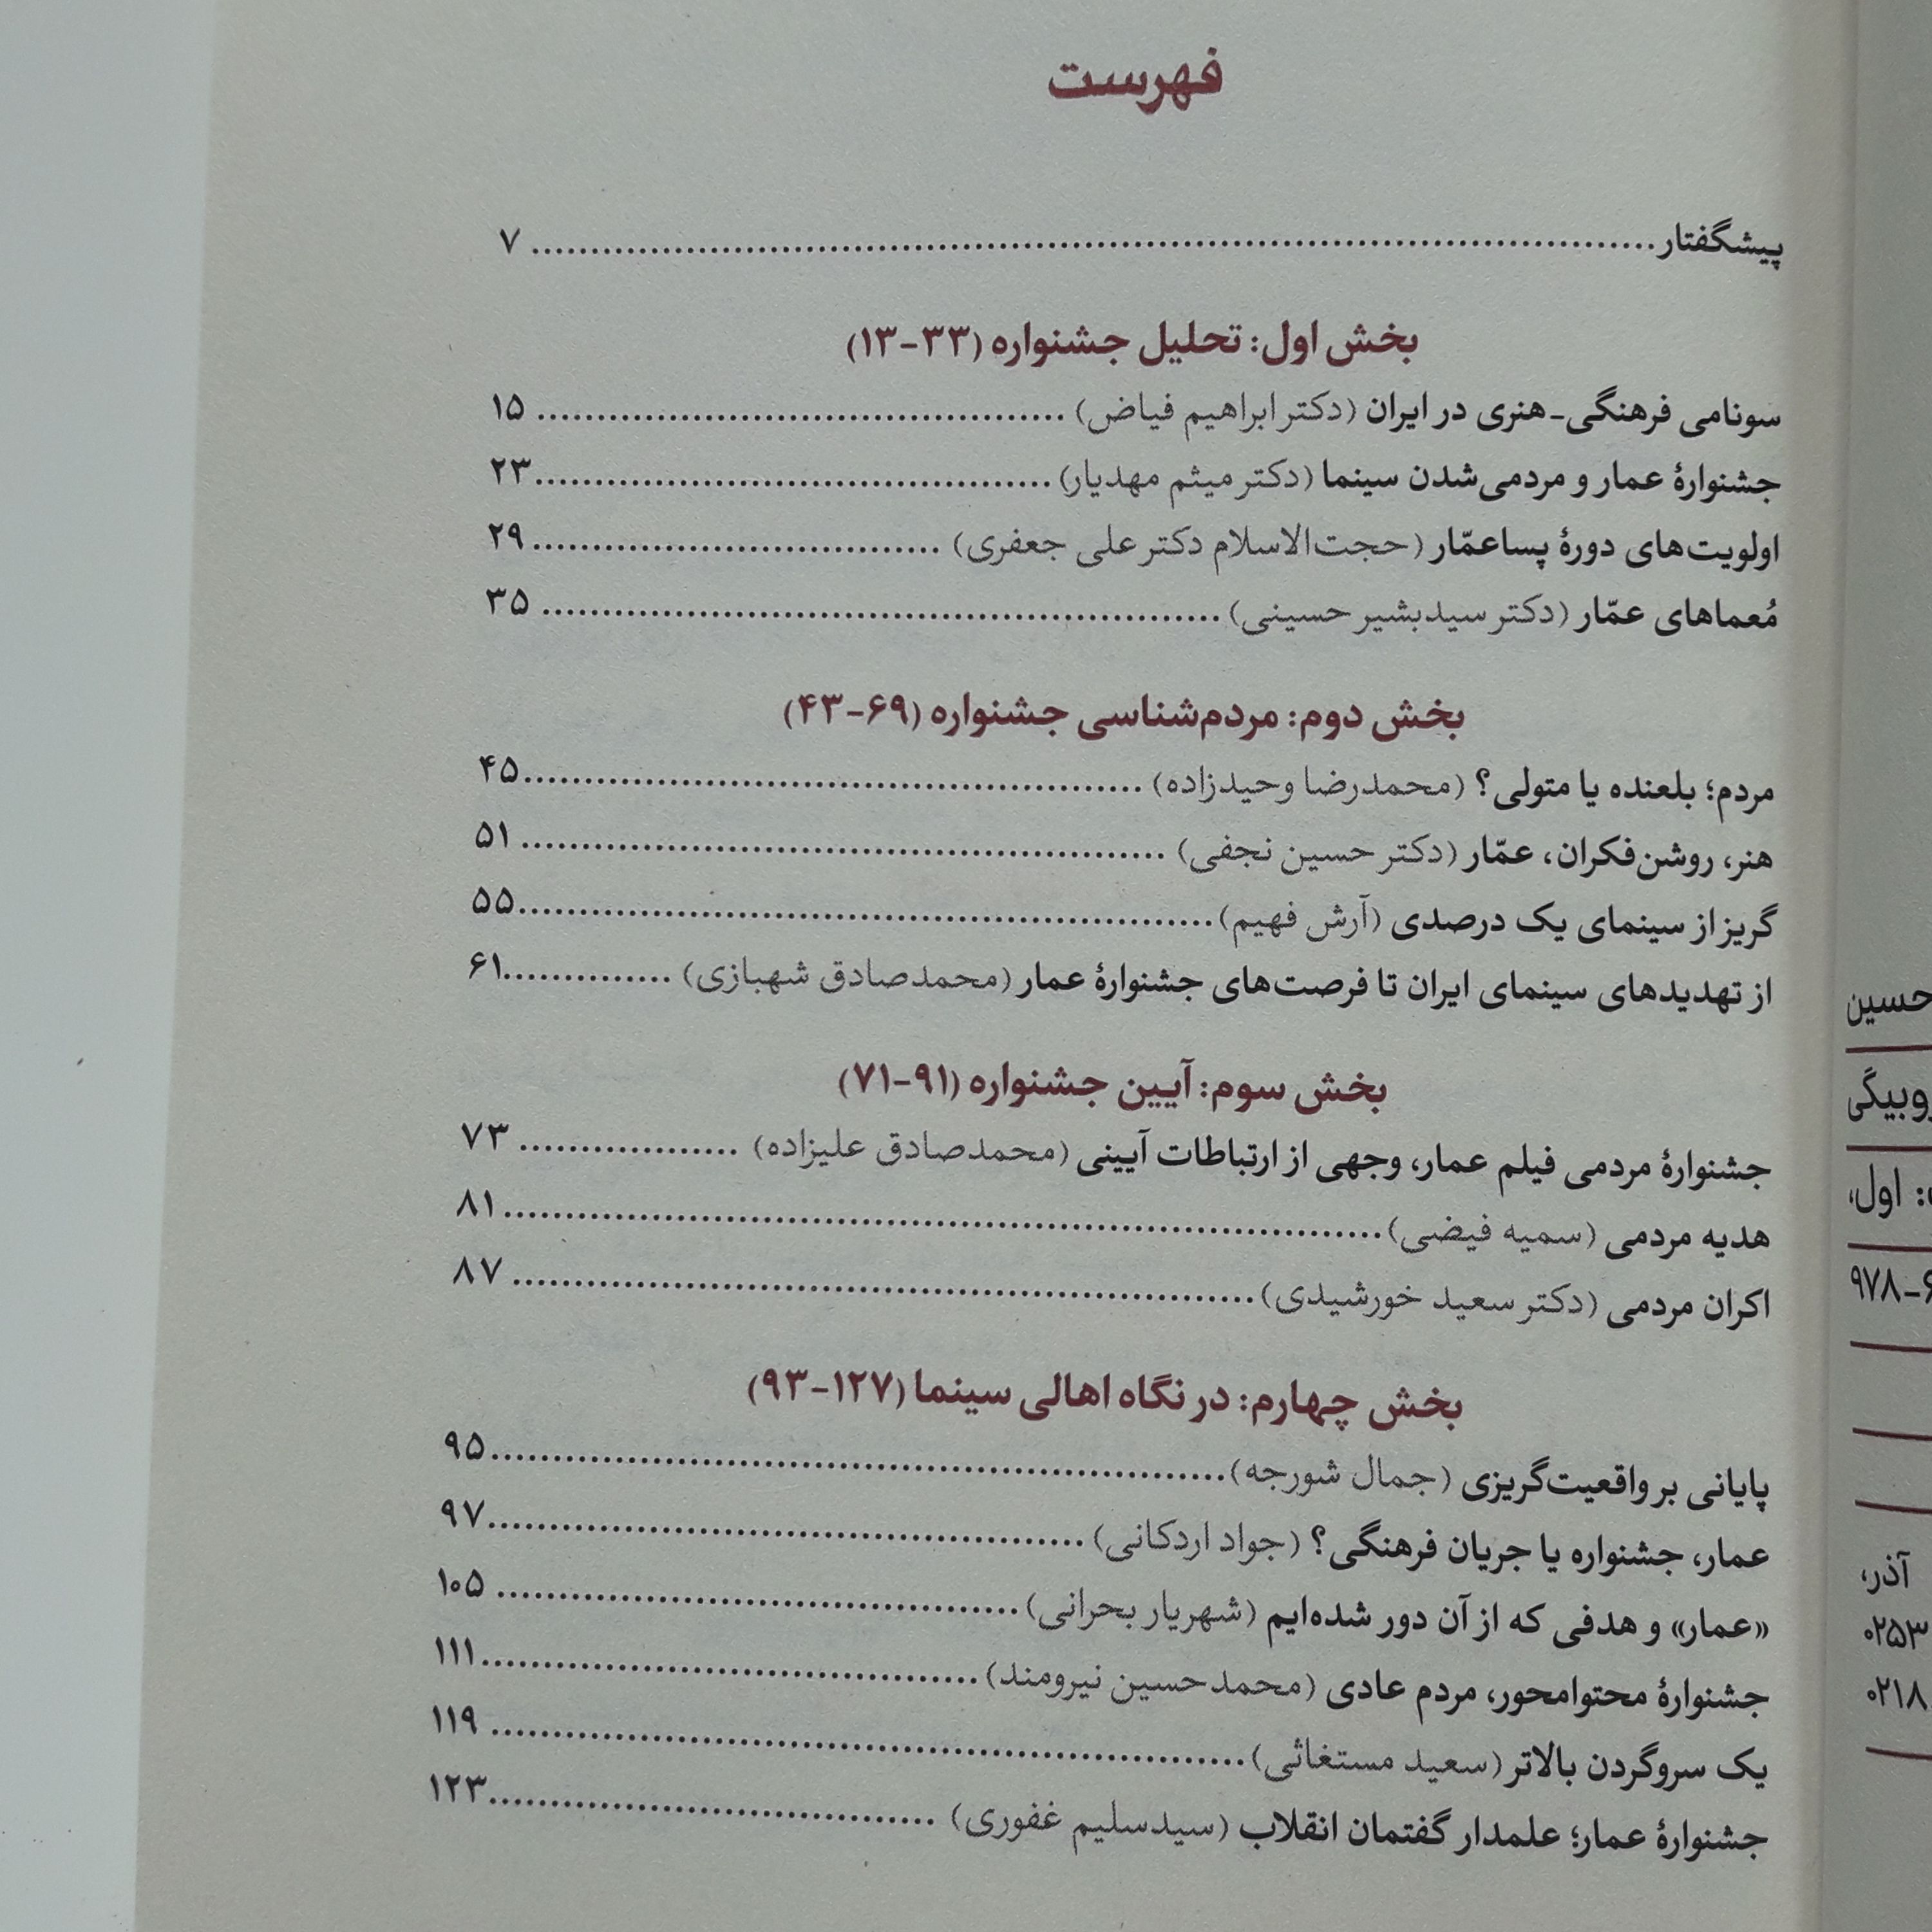 فهرست
پیشگفتار ........ ۷
بخش اول: تحلیل جشنواره (۳۳-۱۳)
سونامی فرهنگی-هنری در ایران (دکتر ابراهیم فیاض) ........ ۱۵
جشنوارهٔ عمار و مردمی‌شدن سینما (دکتر میثم مهدیار) ........ ۲۳
اولویت‌های دورهٔ پساعمّار (حجت‌الاسلام دکتر علی جعفری) ........ ۲۹
مُعماهای عمّار (دکتر سیدبشیر حسینی) ........ ۳۵
بخش دوم: مردم‌شناسی جشنواره (۶۹-۴۳)
مردم؛ بلعنده یا متولی؟ (محمدرضا وحیدزاده) ........ ۴۵
هنر، روشن‌فکران، عمّار (دکتر حسین نجفی) ........ ۵۱
گریز از سینمای یک درصدی (آرش فهیم) ........ ۵۵
از تهدیدهای سینمای ایران تا فرصت‌های جشنوارهٔ عمار (محمدصادق شهبازی) ........ ۶۱
بخش سوم: آیین جشنواره (۹۱-۷۱)
جشنوارهٔ مردمی فیلم عمار، وجهی از ارتباطات آیینی (محمدصادق علیزاده) ........ ۷۳
هدیه مردمی (سمیه فیضی) ........ ۸۱
اکران مردمی (دکتر سعید خورشیدی) ........ ۸۷
بخش چهارم: در نگاه اهالی سینما (۱۲۷-۹۳)
پایانی بر واقعیت‌گریزی (جمال شورجه) ........ ۹۵
عمار، جشنواره یا جریان فرهنگی؟ (جواد اردکانی) ........ ۹۷
«عمار» و هدفی که از آن دور شده‌ایم (شهریار بحرانی) ........ ۱۰۵
جشنوارهٔ محتوامحور، مردم عادی (محمدحسین نیرومند) ........ ۱۱۱
یک سروگردن بالاتر (سعید مستغاثی) ........ ۱۱۹
جشنوارهٔ عمار؛ علمدار گفتمان انقلاب (سیدسلیم غفوری) ........ ۱۲۳
حسین
: اول،
۹۷۸-۶
آذر،
۰۲۵۳
۰۲۱۸